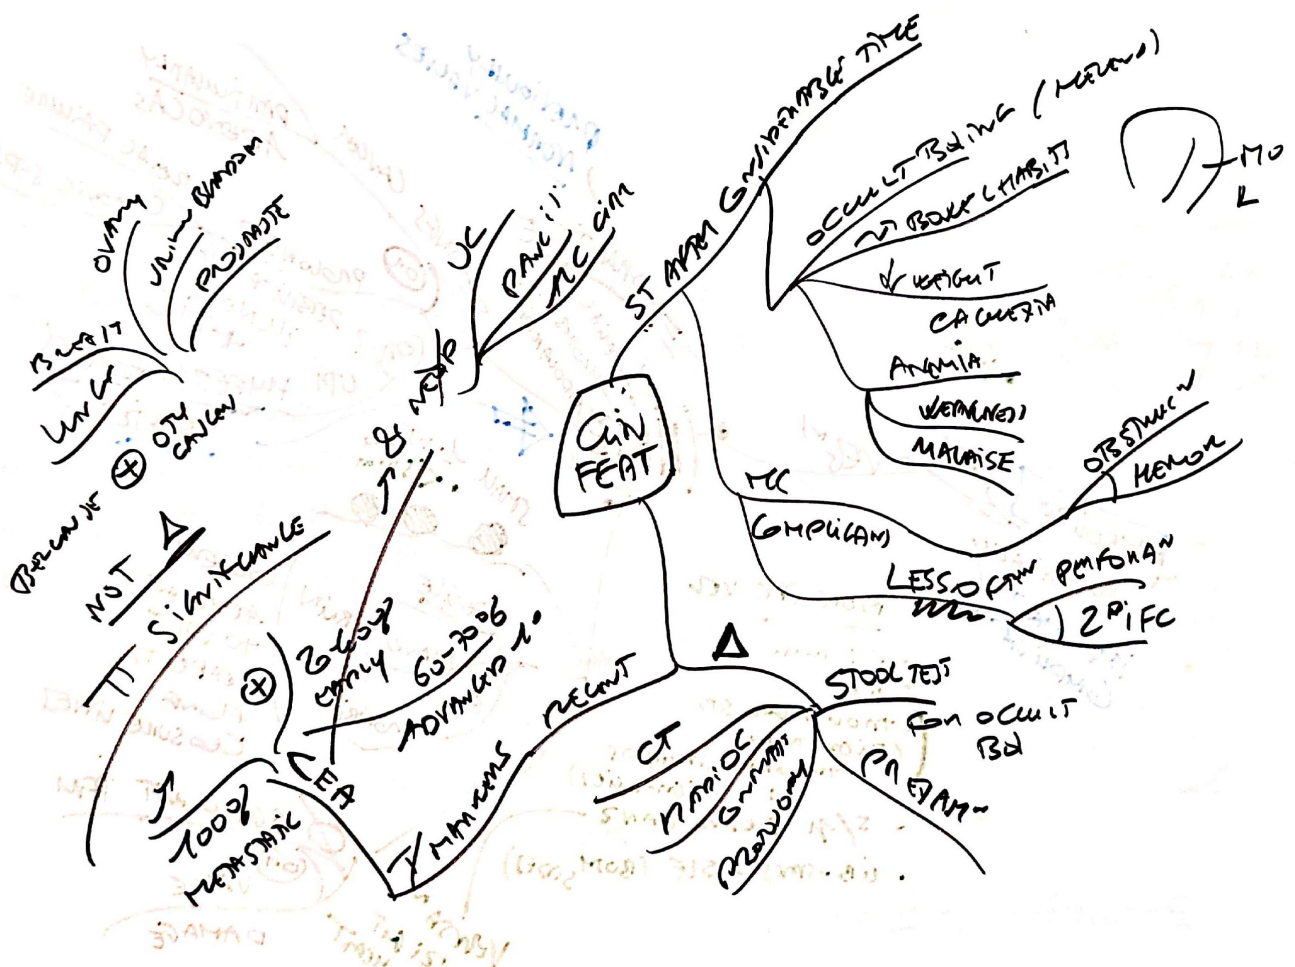 CLIN
FEAT
ST AFTER CONSIDERABLE TIME
OCCULT BLDING (MELENA)
BOWEL HABIT
↓ WEIGHT
CACHEXIA
ANEMIA
WEAKNESS
MALAISE
MO
MC
COMPLICANS
OBSTRUCN
HEMOR
LESS OFTEN
PERFORAN
2° iFC
Δ
STOOL TEST
FOR OCCULT
Bld
PR EXAMN
CT
RADIOG
CONTRAST
RECENT
T MARKERS
CEA
⊕
20-40%
EARLY
60-70%
ADVANCED 1°
↑
100%
METASTATIC
TT SIGNIFICANCE
NOT Δ
BECAUSE ⊕ OTH
CANCER
LUNG
BREAST
OVARY
URIN BLADDER
PROSTATE
↑ &
UC
PANC ii
ALC CiRR